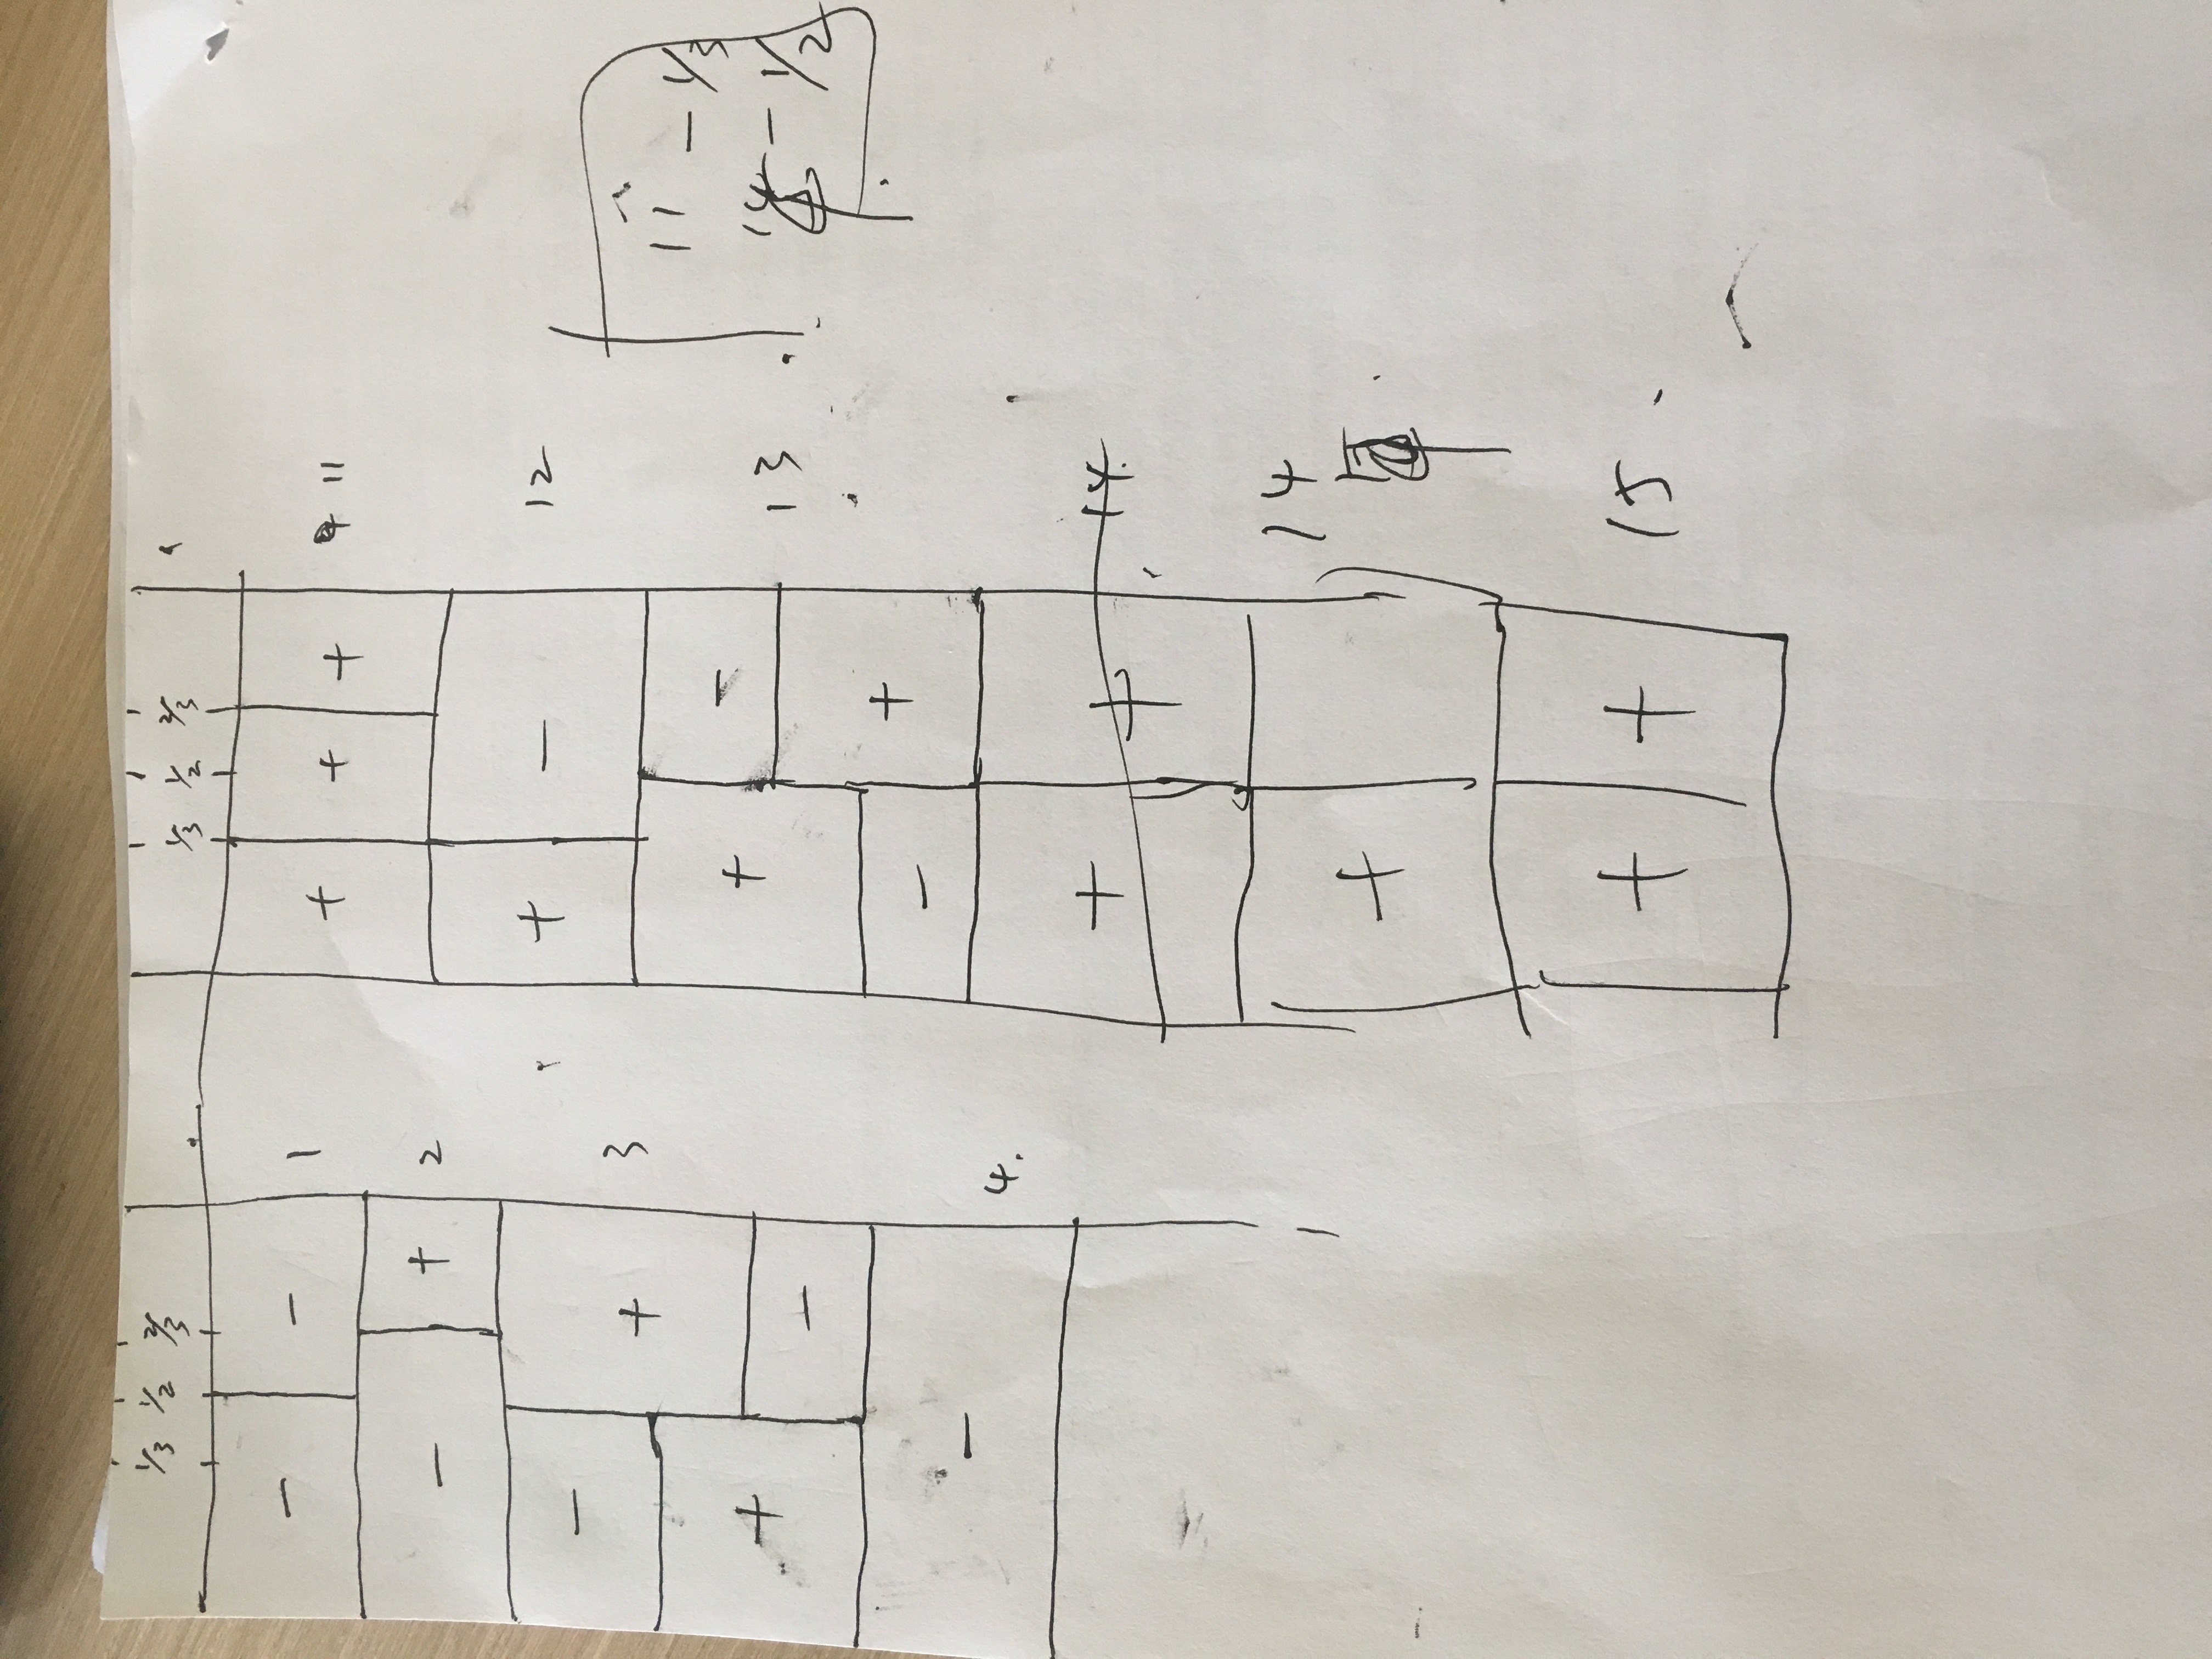 1/3 1/2 2/3
- - 1
- + 2
- + 3
+ -
- 4.
1/3 1/2 2/3
+ + + 11
+ - 12
+ - 13
- +
+ + 14.
+ 14
+ + 15.
11 - 1/3
14 - 1/2